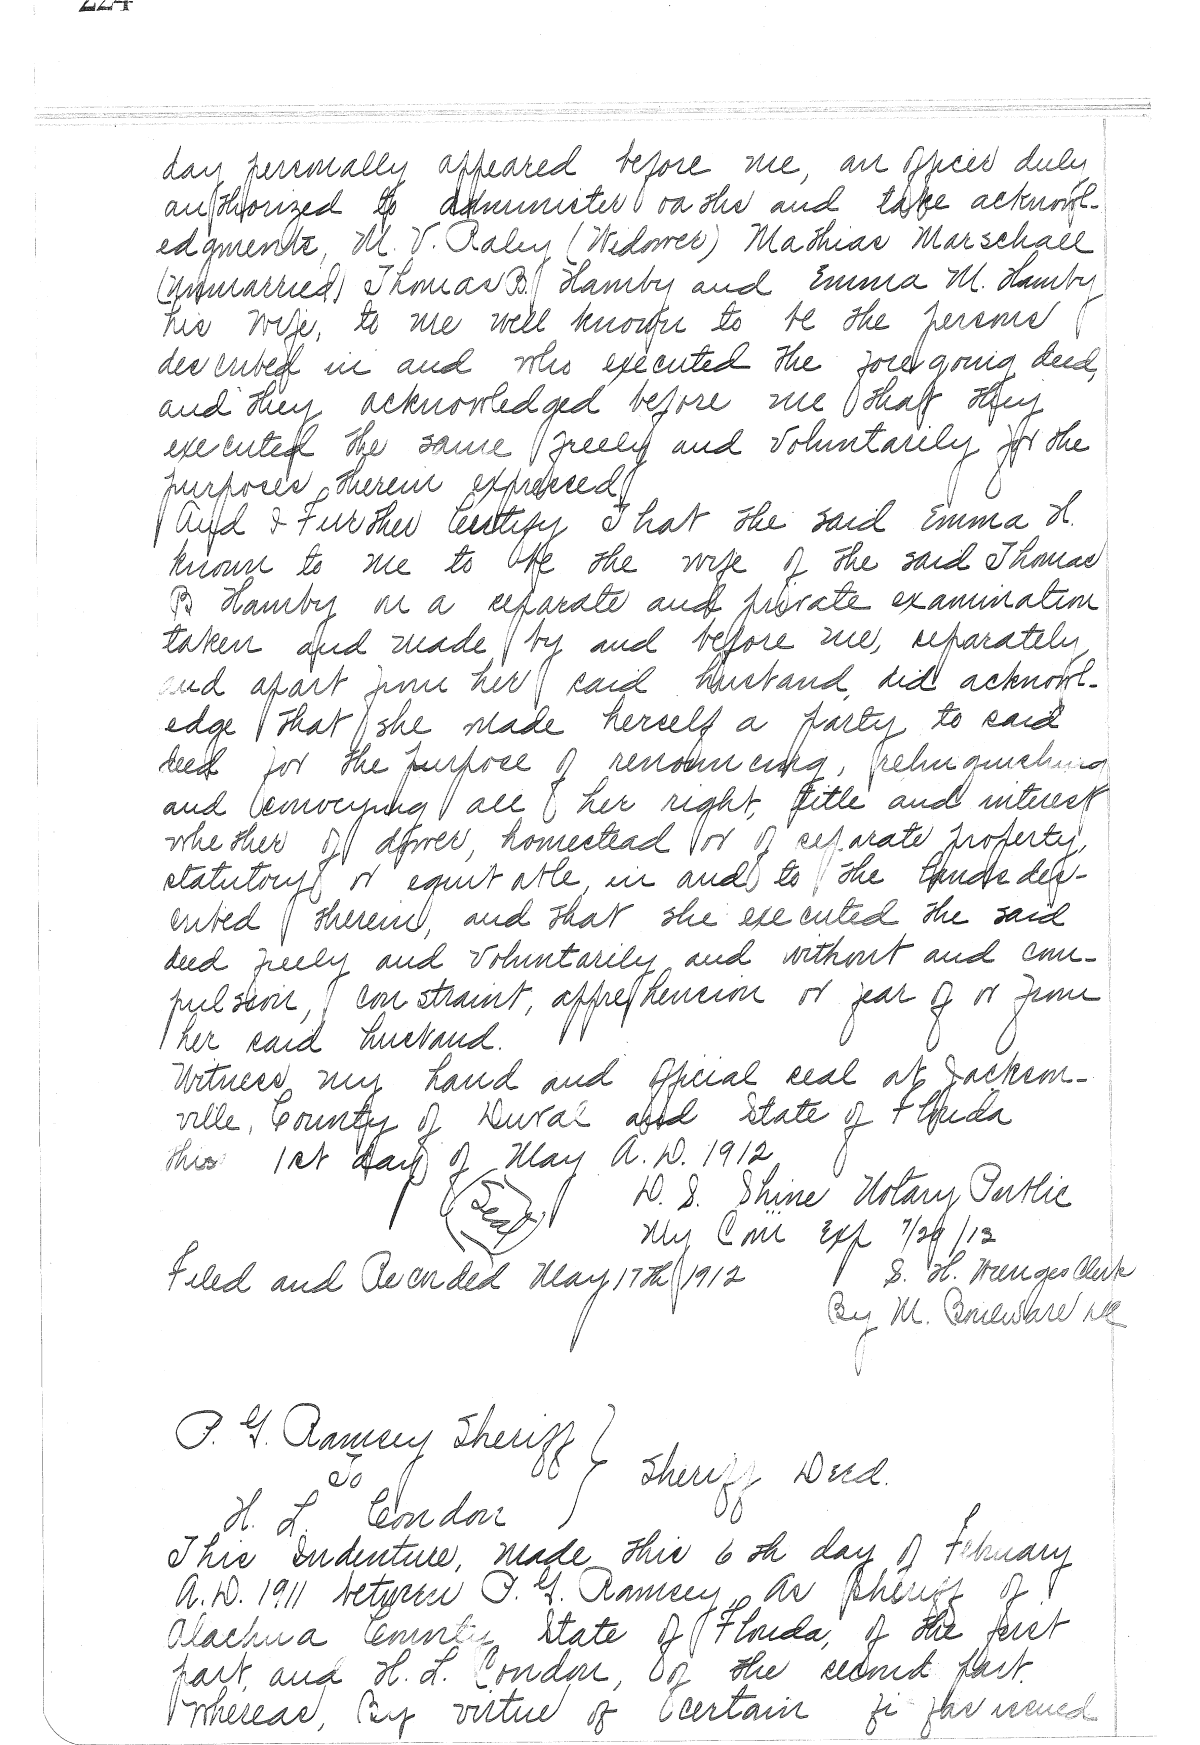 224
day personally appeared before me, an officer duly
authorized to administer oaths and take acknowl-
edgments, M. V. Raley (Widower) Mathias Marschall
(Unmarried) Thomas B Hamby and Emma M. Hamby
his wife, to me well known to be the persons
described in and who executed the foregoing deed,
and they acknowledged before me that they
executed the same freely and voluntarily for the
purposes therein expressed
And I Further Certify That the said Emma H.
known to me to be the wife of the said Thomas
B Hamby on a separate and private examination
taken and made by and before me, separately
and apart from her said husband, did acknowl-
edge that she made herself a party to said
deed for the purpose of renouncing, relinquishing
and conveying all her right, title and interest
whether of dower, homestead or of separate property,
statutory or equitable, in and to the lands des-
cribed therein, and that she executed the said
deed freely and voluntarily and without and com-
pulsion, constraint, apprehension or fear of or from
her said husband.
Witness my hand and official seal at Jackson-
ville, County of Duval and State of Florida
this 1st day of May A.D. 1912
(Seal) D. S. Shine Notary Public
My Com Exp 7/29/13
Filed and Recorded May 17th 1912 S. H. Wienges Clerk
By M. Bouleware DC
P. G. Ramsey Sheriff
To } Sheriff Deed.
H. L. Condon
This Indenture, made this 6th day of February
A.D. 1911 between P. G. Ramsey, as Sheriff of
Alachua County State of Florida, of the first
part, and H. L. Condon, of the second part.
Whereas, By virtue of certain fi fas issued